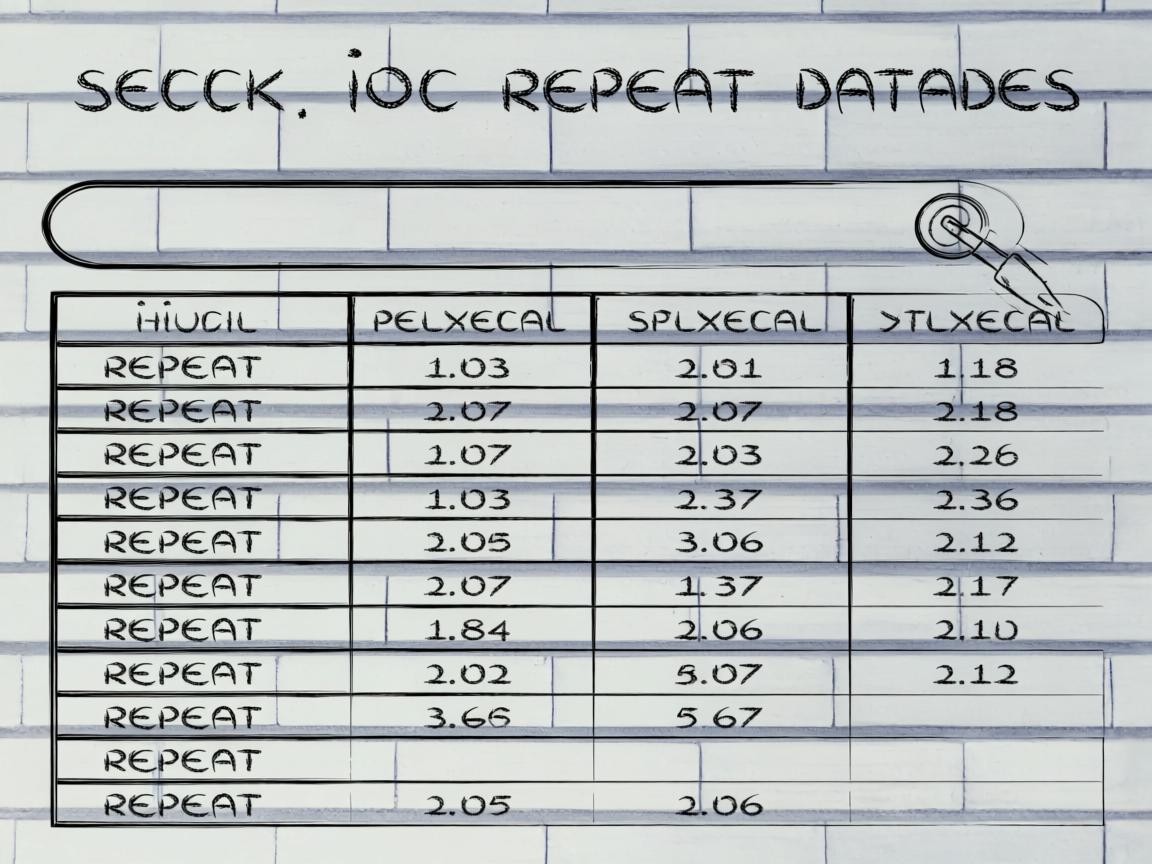 SECCK. iOC REPEAT DATADES
HIUCIL PELXECAL SPLXECAL >TLXECAL
REPEAT 1.03 2.01 1.18
REPEAT 2.07 2.07 2.18
REPEAT 1.07 2.03 2.26
REPEAT 1.03 2.37 2.36
REPEAT 2.05 3.06 2.12
REPEAT 2.07 1.37 2.17
REPEAT 1.84 2.06 2.10
REPEAT 2.02 5.07 2.12
REPEAT 3.66 5 67
REPEAT
REPEAT 2.05 2.06